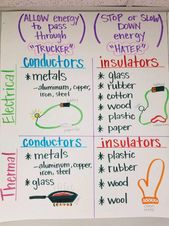 (ALLOW energy to pass through "TRUCKER")
(STOP or SLOW DOWN energy "HATER")
Electrical
conductors
* metals
- aluminum, copper, iron, steel
insulators
* glass
* rubber
* cotton
* wool
* plastic
* paper
Thermal
conductors
* metals
- aluminum, copper, iron, steel
* glass
insulators
* plastic
* rubber
* wood
* wool